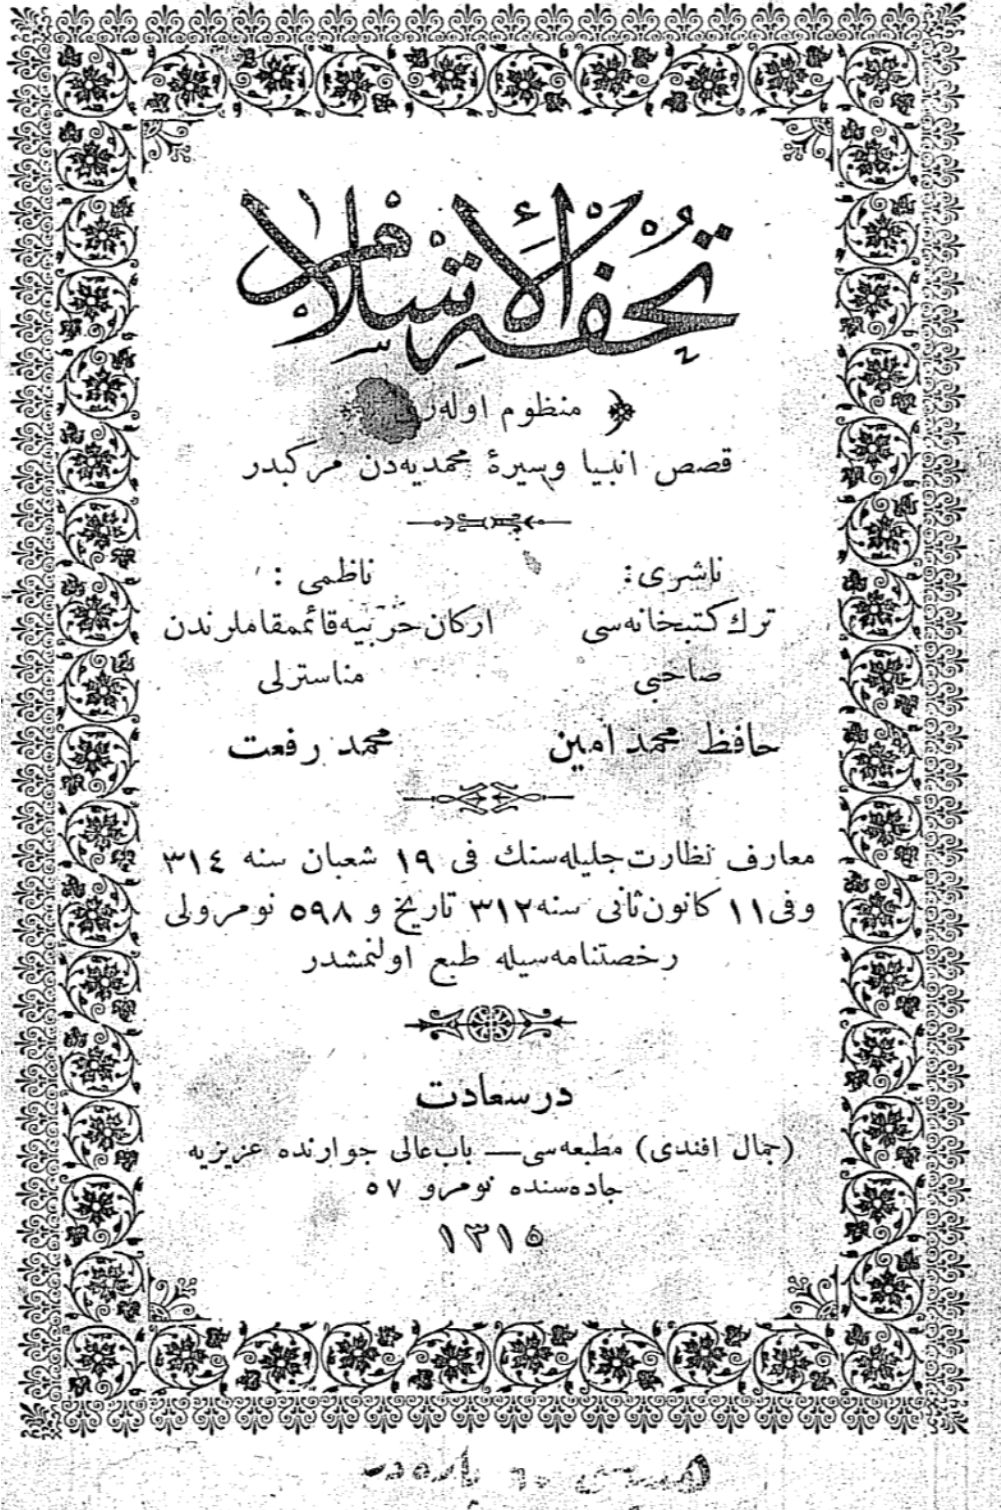 تحفة الإسلام
منظوم اوله‌رق
قصص انبیا وسیرۀ محمدیه‌دن مرکبدر
ناشری :
ترك کتبخانه‌سی
صاحبی
حافظ محمد امین
ناظمی :
ارکان حربیه قائممقاملرندن
مناسترلی
محمد رفعت
معارف نظارت جلیله‌سنك فی ١٩ شعبان سنه ٣١٤
وفی ١١ کانون ثانی سنه ٣١٢ تاریخ و ٥٩٨ نومرولی
رخصتنامه‌سیله طبع اولنمشدر
درسعادت
(جمال افندی) مطبعه‌سی — باب عالی جوارنده عزیزیه
جاده‌سنده نومرو ٥٧
١٣١٥